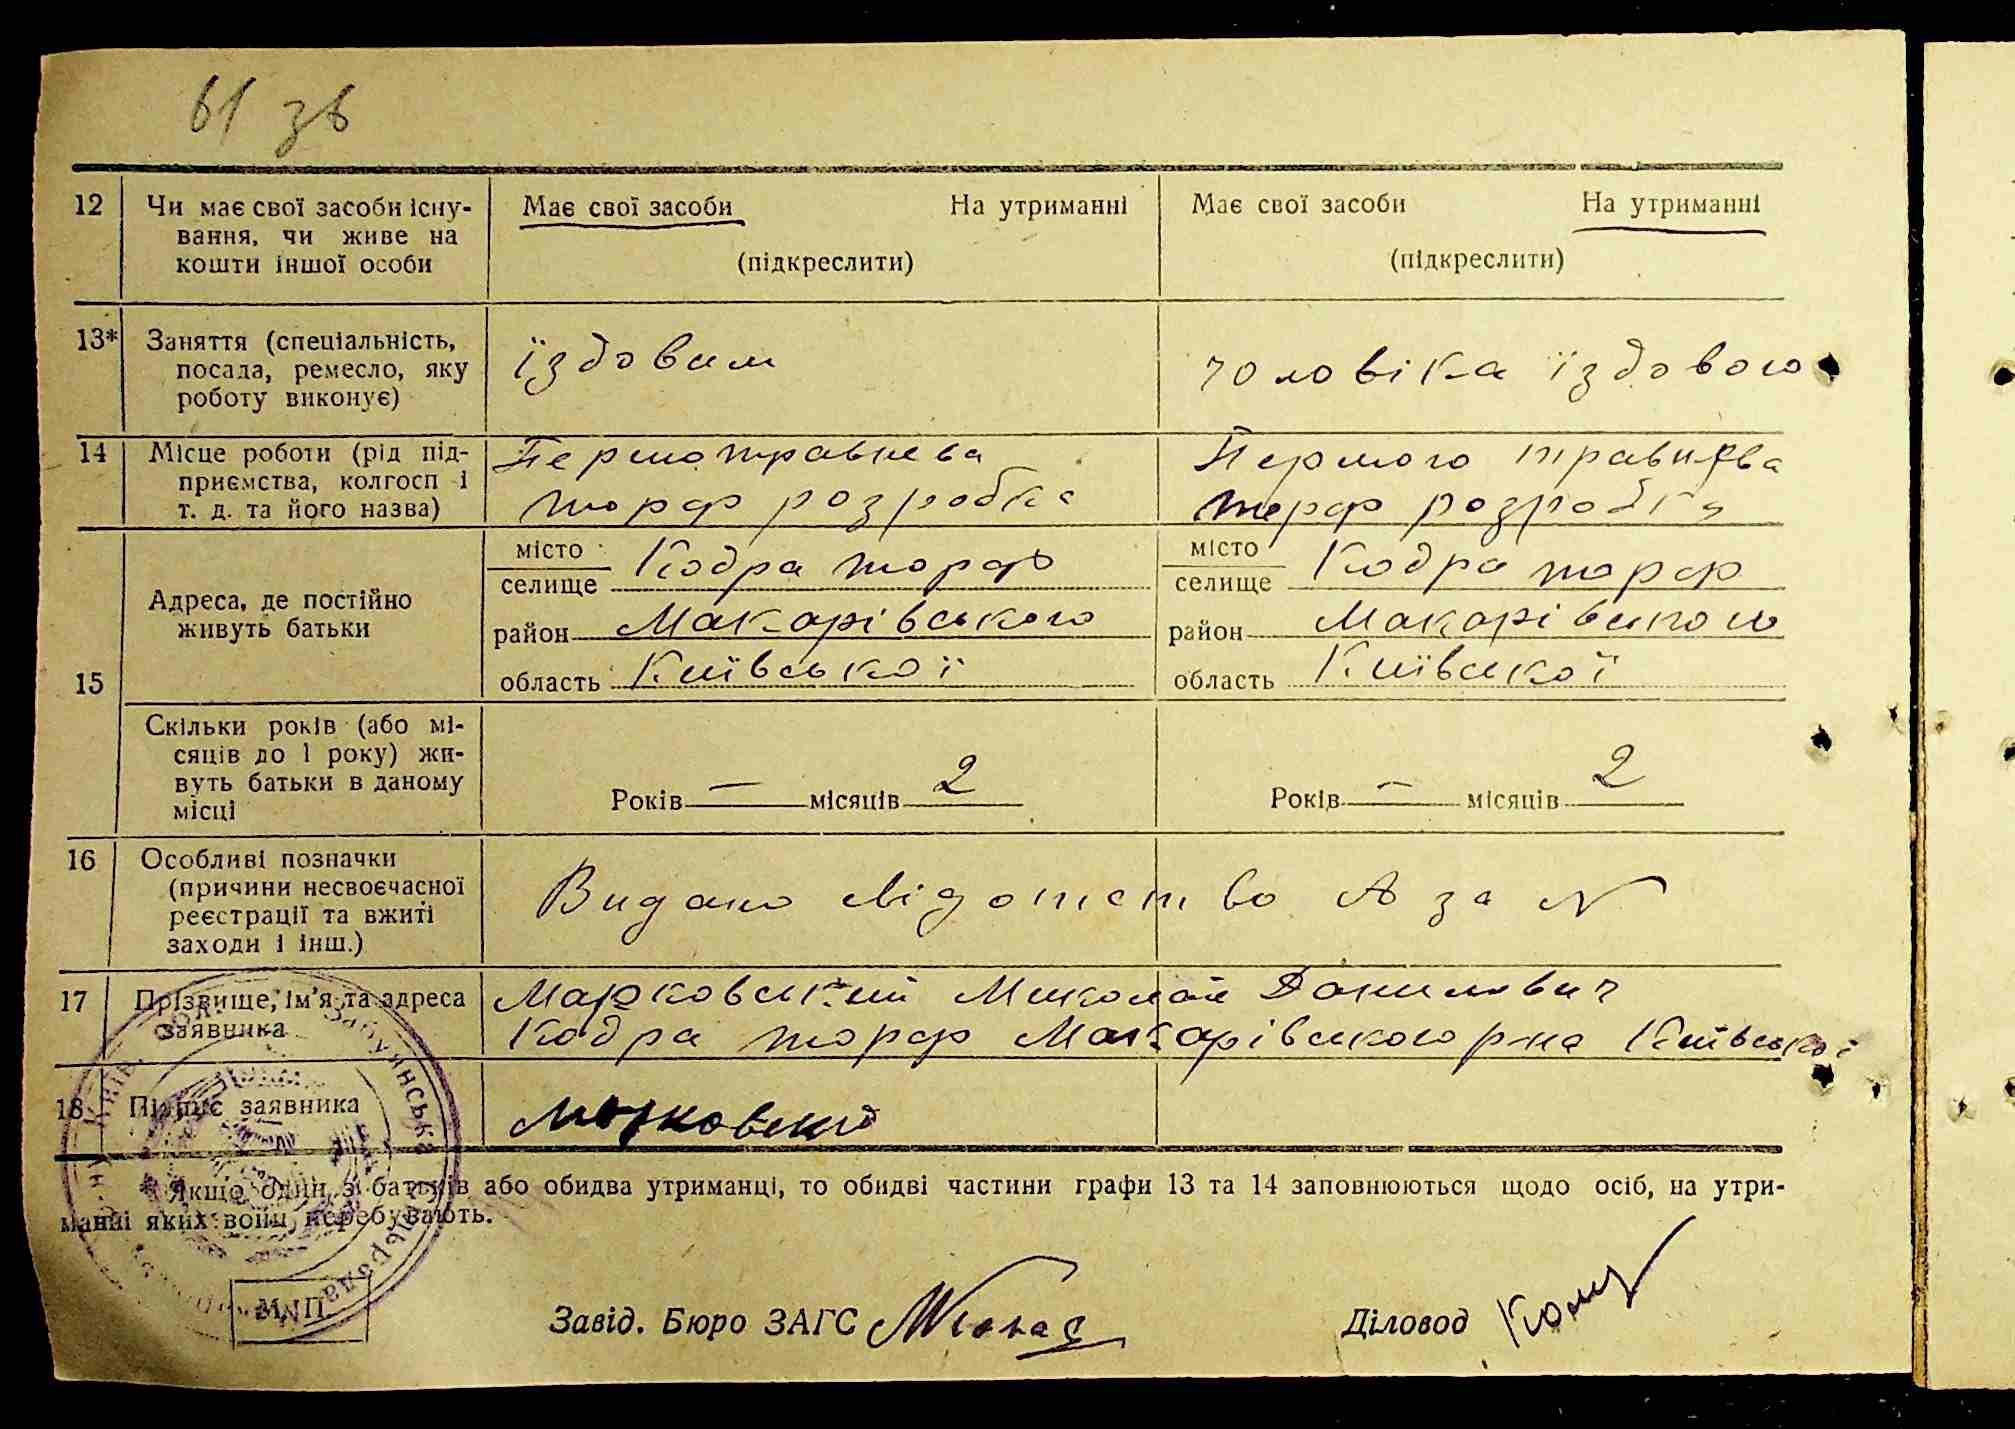 61 зв
12 Чи має свої засоби існу- Має свої засоби На утриманні Має свої засоби На утриманні
вання, чи живе на
кошти іншої особи (підкреслити) (підкреслити)
13* Заняття (спеціальність,
посада, ремесло, яку їздовим чоловіка їздового
роботу виконує)
14 Місце роботи (рід під- Першотравнева Першого травнєва
приємства, колгосп і торф розробка торф розробка
т. д. та його назва)
місто Кодра торф місто Кодра торф
селище селище
Адреса, де постійно
живуть батьки район Макарівського район Макарівського
15 область Київської область Київської
Скільки років (або мі-
сяців до 1 року) жи-
вуть батьки в даному Років — місяців 2 Років — місяців 2
місці
16 Особливі позначки
(причини несвоєчасної Видано свідотство А за N
реєстрації та вжиті
заходи і інш.)
17 Прізвище, ім'я та адреса Марковський Миколай Данилович
заявника Кодра торф Макарівського р-на Київської
18 Підпис заявника Марковский
* Якщо один з батьків або обидва утриманці, то обидві частини графи 13 та 14 заповнюються щодо осіб, на утри-
манні яких вони перебувають.
Забуянська сільрада
М П
Завід. Бюро ЗАГС Діловод